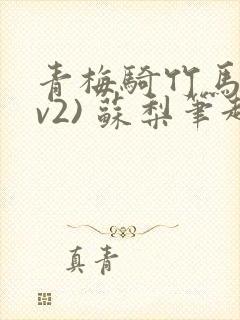 青梅騎竹馬
v2) 蘇梨筆
真青